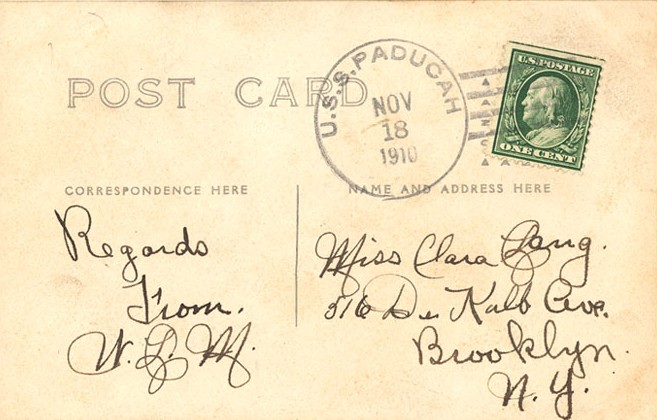 POST CARD
U.S.S. PADUCAH
NOV
18
1910
U.S. POSTAGE
ONE CENT
CORRESPONDENCE HERE
NAME AND ADDRESS HERE
Regards
From.
W. L. M.
Miss Clara Lang.
316 De Kalb Ave.
Brooklyn.
N. Y.